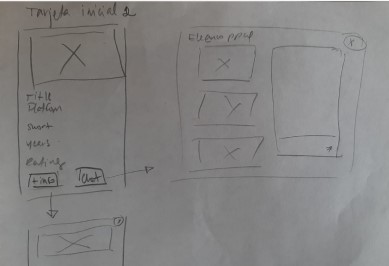 Tarjeta inicial 2
Title
Platform
smart
years
Rating
+ info
Chat